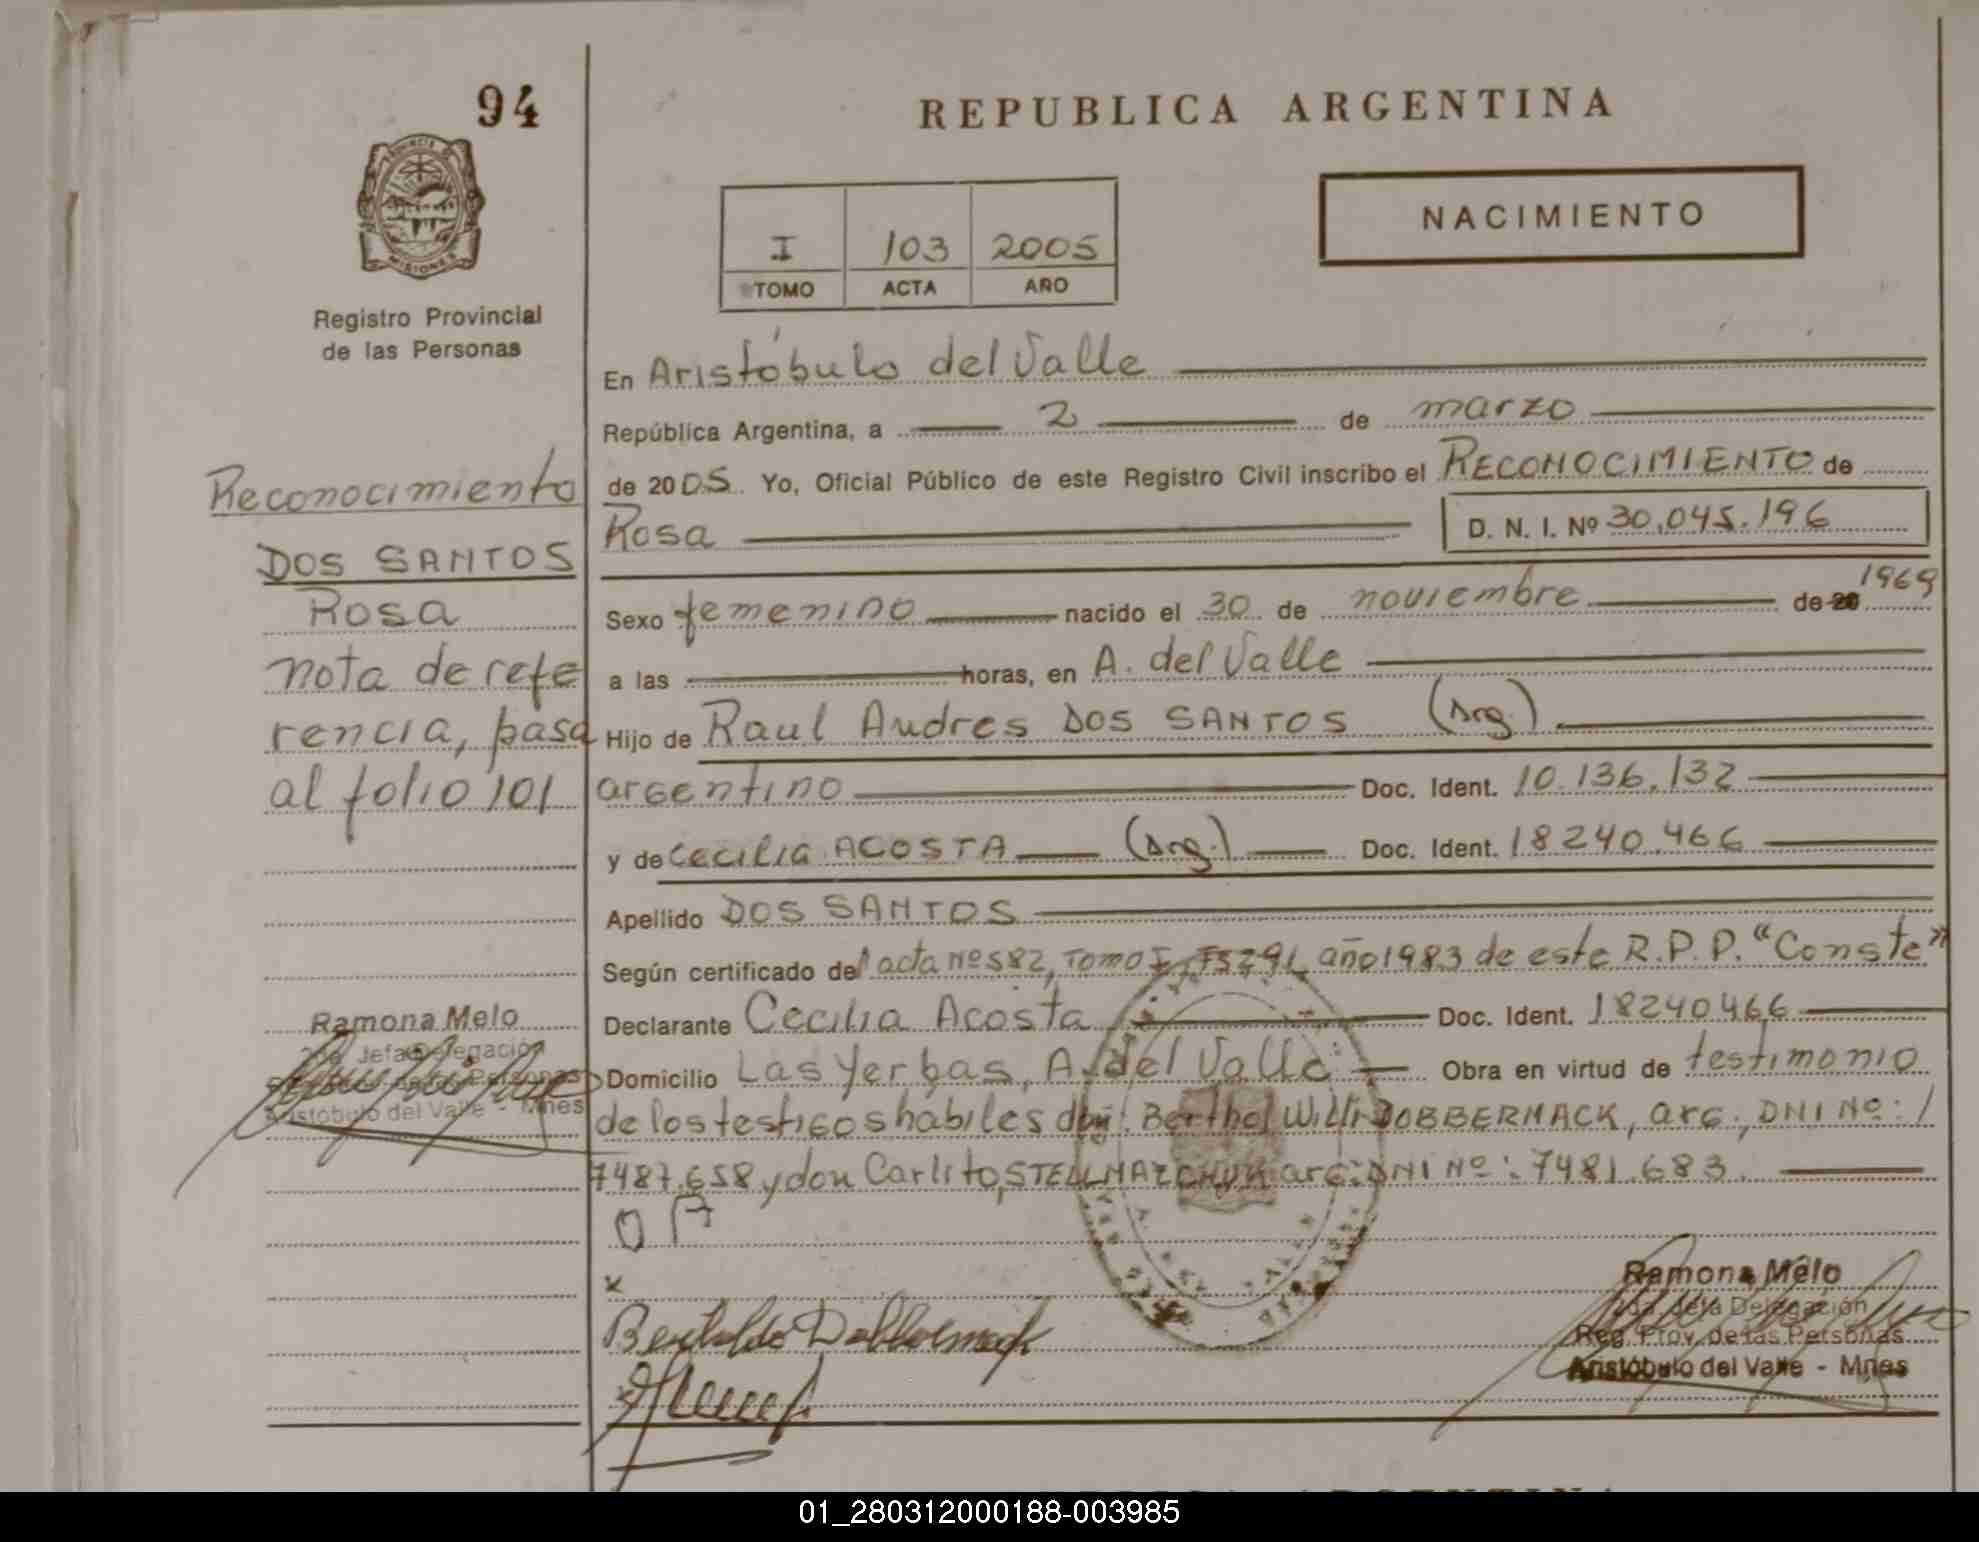 94
REPUBLICA ARGENTINA
PROVINCIA
MISIONES
Registro Provincial
de las Personas
I 103 2005
TOMO ACTA AÑO
NACIMIENTO
En Aristóbulo del Valle
República Argentina, a 2 de marzo
de 2005 Yo, Oficial Público de este Registro Civil inscribo el RECONOCIMIENTO de
Rosa D. N. I. Nº 30.045.196
Sexo femenino nacido el 30 de noviembre de 20 1969
a las horas, en A. del Valle
Hijo de Raul Andres DOS SANTOS (Arg.)
argentino Doc. Ident. 10.136.132
y de Cecilia ACOSTA (Arg.) Doc. Ident. 18240.466
Apellido DOS SANTOS
Según certificado del acta Nº 582, Tomo I, año 1983 de este R.P.P. "Conste"
Declarante Cecilia Acosta Doc. Ident. 18240466
Domicilio Las Yerbas, A. del Valle Obra en virtud de testimonio
de los testigos habiles don: Berthol Willi DOBBERMACK, arg., DNI Nº: /
7487.658 y don Carlito, arg: DNI Nº: 7481.683.
Reconocimiento
DOS SANTOS
Rosa
nota de refe
rencia, pasa
al folio 101
Ramona Melo
2da. Jefa Delegación
Reg. Prov. de las Personas
Aristóbulo del Valle - Mnes
x
Bertoldo Dobbermack
x
Ramona Melo
2da. Jefa Delegación
Reg. Prov. de las Personas
Aristóbulo del Valle - Mnes
01_280312000188-003985